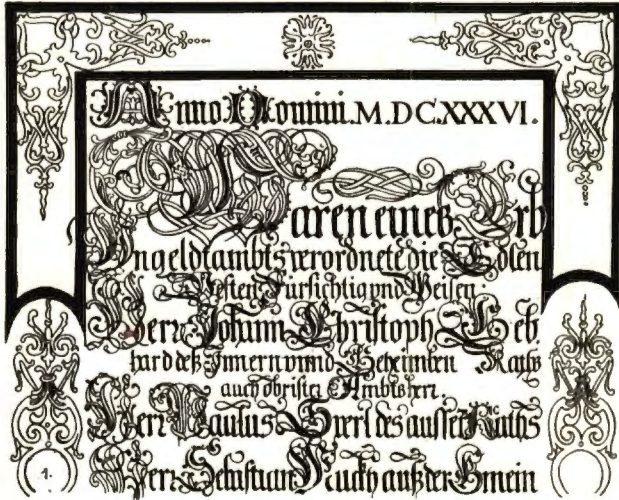 Anno Domini. M.DC.XXXVI.
Waren eines Erb
Ungeldtambts verordnete die Edlen
Vesten Fürsichtig vnd Weisen.
Herr Johann Christoph Geb
hard deß Innern vnnd Geheimben Raths
auch obrister Ambtsherr.
Herr Paulus Sperl des ausser Raths
Herr Sebastian außder Gmein
1.